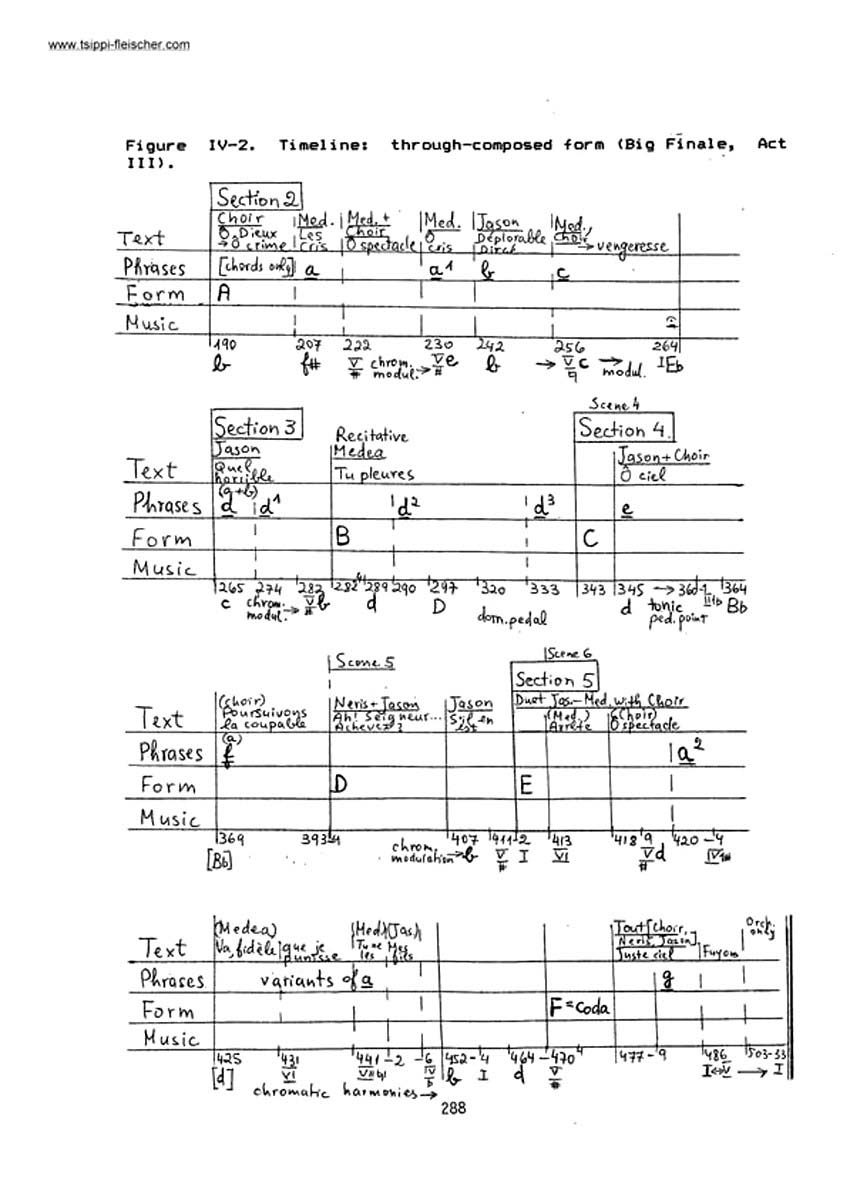 www.tsippi-fleischer.com
Figure IV-2. Timeline: through-composed form (Big Finale, Act
III).
Section 2
Choir | Med. | Med. + | Med. | Jason | Med.,
Ô Dieux Les Choir Ô Déplorable Choir
→ Ô crime Cris Ô spectacle cris → vengeresse
Text
Phrases [chords only] a a1 b c
Form A
Music
190 207 222 230 242 256 264
b f# V # chrom. modul. → V # e b → V ♮ c → modul. I Eb
Scene 4
Section 3 Recitative Section 4.
Jason Medea Jason + Choir
Text Quel horrible Tu pleures Ô ciel
(a+b)
Phrases d d1 d2 d3 e
Form B C
Music
265 274 282 282 289 290 297 320 333 343 345 → 360-1 364
c chrom. modul. → V # b d D dom. pedal d tonic ped. point Bb
Scene 5 Scene 6
Section 5
(choir) Neris + Jason Jason Duet Jas.-Med. with Choir
Text Poursuivons la coupable Ah! Seigneur... Achevez? (Med.) Arrête (Choir) Ô spectacle
(a)
Phrases f a2
Form D E
Music
369 393-4 407 411-2 413 418 9 420-4
[Bb] chrom. modulation → b V # I VI V # d
(Medea) (Med.) (Jas.) Tout [Choir, Neris, Jason] Orch. only
Text Va, fidèle que je punisse Tu ne les Mes fils Juste ciel Fuyons
Phrases variants of a g
Form F = Coda
Music
425 431 441-2 -6 452-4 464-470 477-9 486 503-33
[d] VI b I d V # I↔V → I
chromatic harmonies →
288